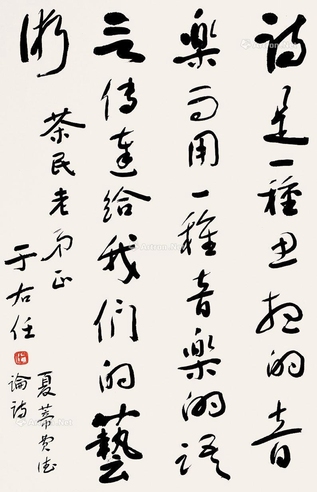 詩是一種思想的音
樂而用一種音樂的語
言傳達給我們的藝
術
茶民老弟正
于右任
夏德
論詩